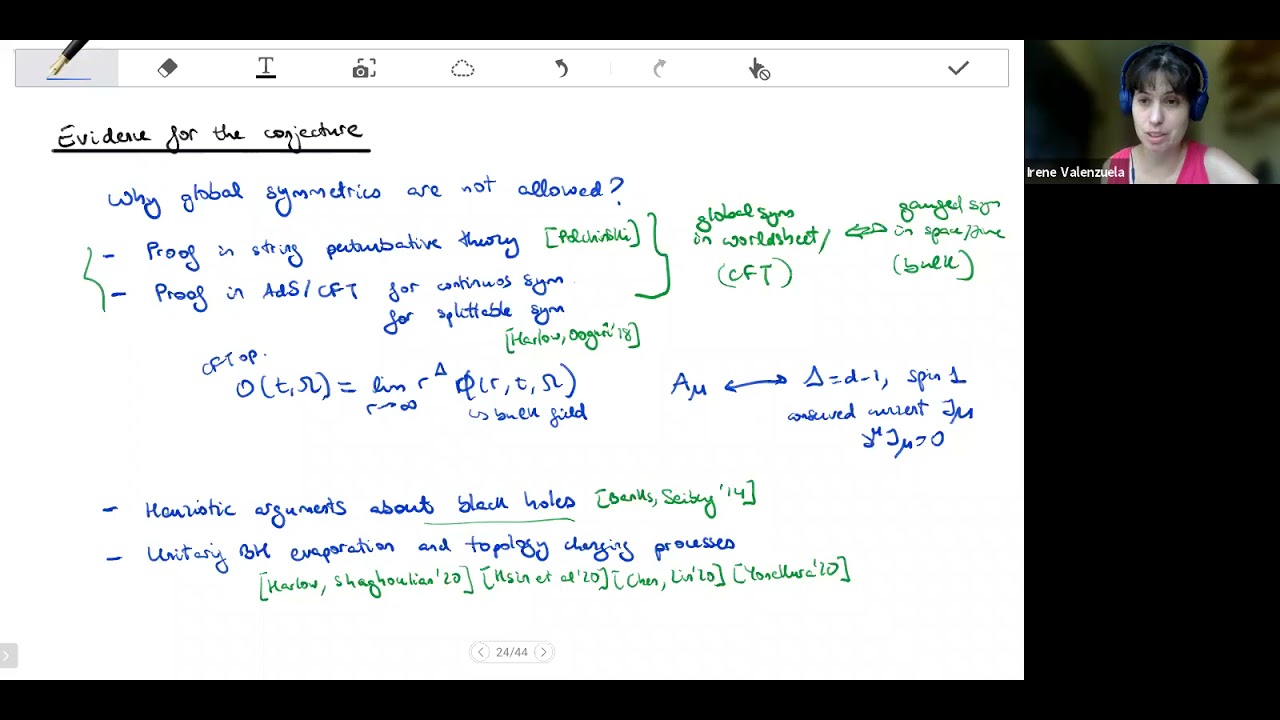 T
Irene Valenzuela
Evidence for the conjecture
Why global symmetries are not allowed?
- Proof in string perturbative theory [Polchinski]
- Proof in AdS/CFT for continuos sym
for splittable sym
[Harlow, Ooguri '18]
global sym
in worldsheet/
(CFT)
gauged sym
in space/time
(bulk)
CFT op.
O(t,Ω) = lim r^Δ ϕ(r,t,Ω)
r→∞
↳ bulk field
Aμ ↔ Δ=d-1, spin 1
conserved current Jμ
∂^μ Jμ=0
- Heuristic arguments about black holes [Banks, Seiberg '14]
- Unitary BH evaporation and topology changing processes
[Harlow, Shaghoulian '20] [Hsin et al '20] [Chen, Lin '20] [Yonekura '20]
24/44